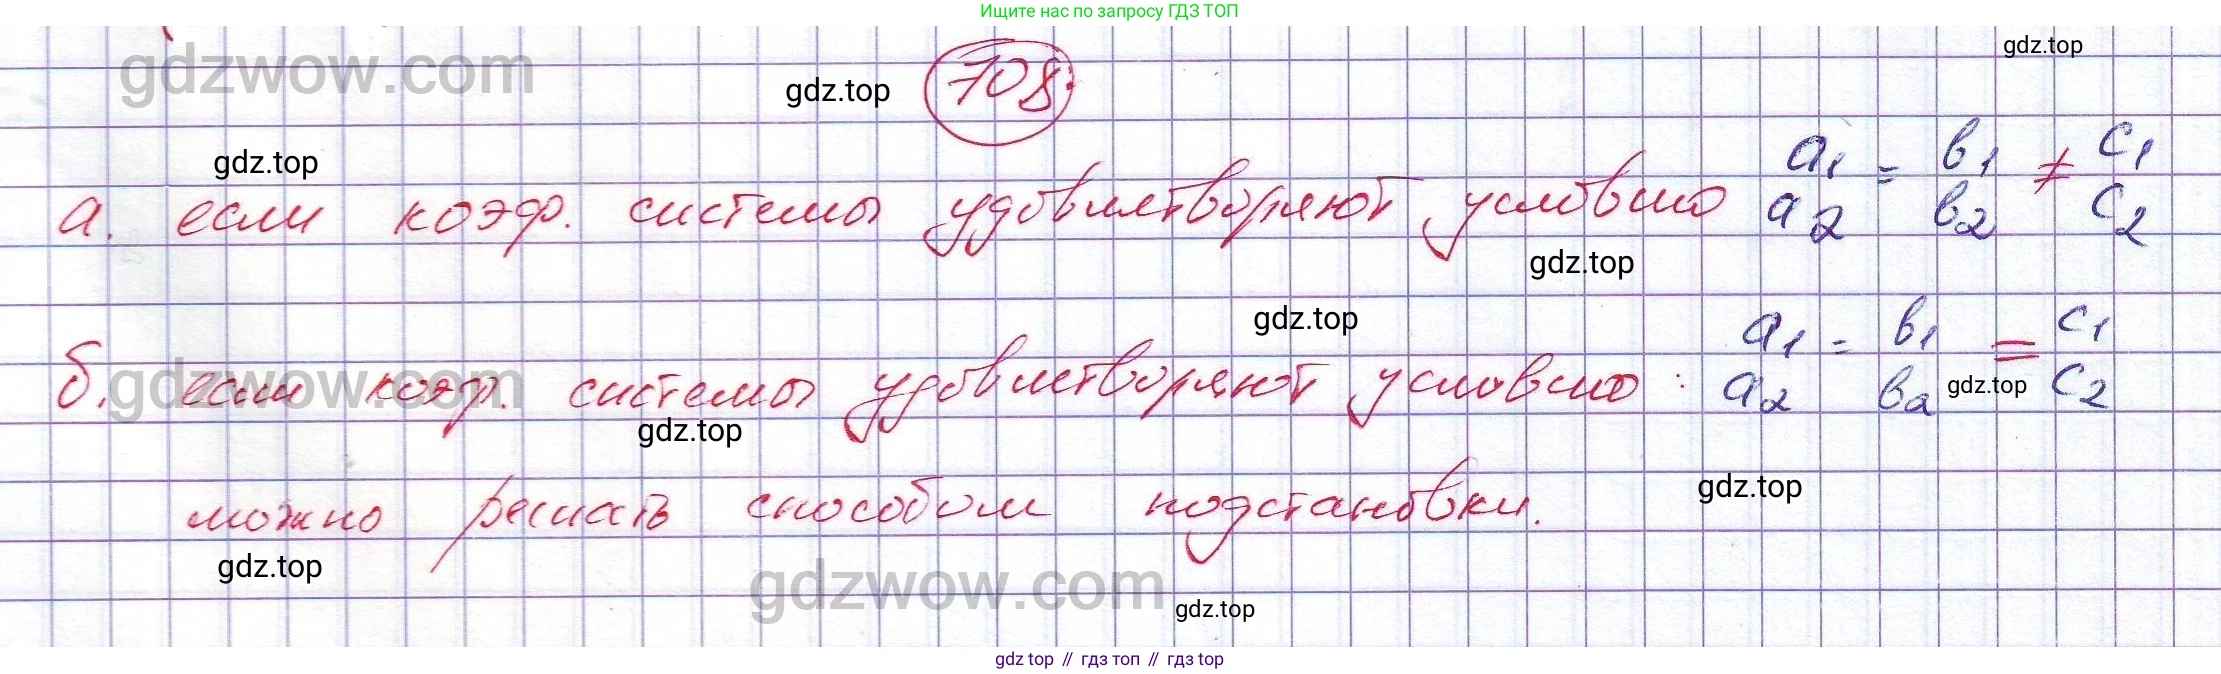 Ищите нас по запросу ГДЗ ТОП
gdzwow.com
gdz.top
gdz.top
708.
gdz.top
а. если коэф. системы удовлетворяют условию a₁/a₂ = b₁/b₂ ≠ c₁/c₂
gdz.top
gdz.top
gdzwow.com
б. если коэф. системы удовлетворяют условию: a₁/a₂ = b₁/b₂ = c₁/c₂
gdz.top
gdz.top
можно решать способом подстановки.
gdz.top
gdz.top
gdzwow.com
gdz.top
gdz top // гдз топ // гдз top